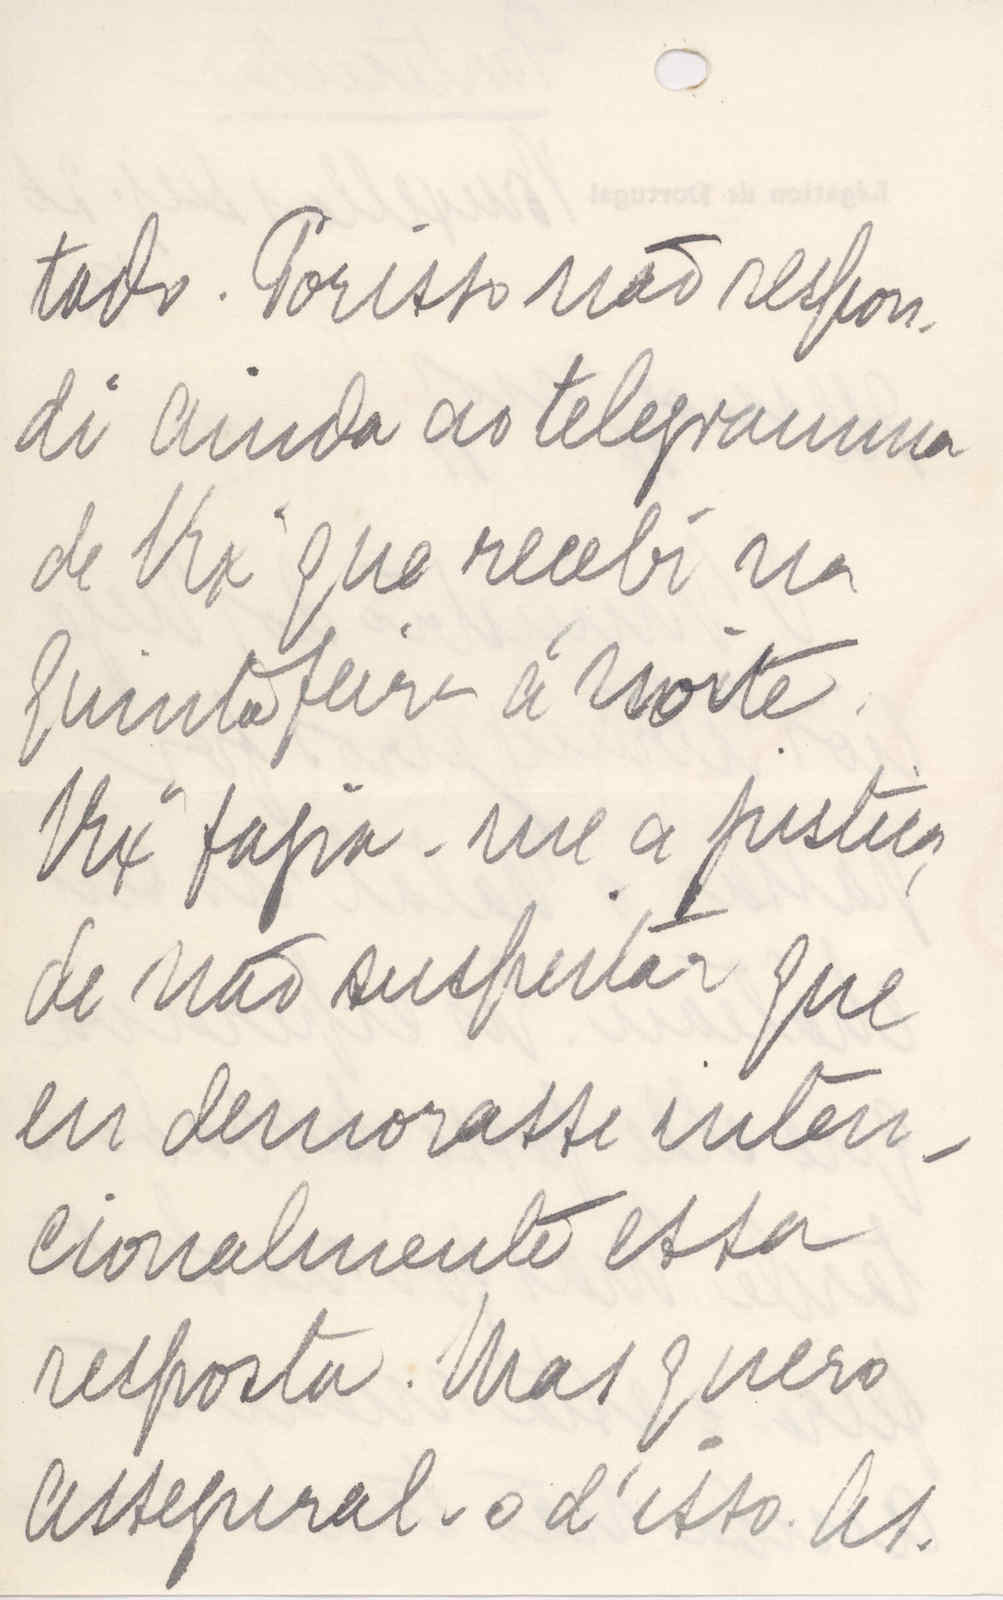 tado. Porisso não respon-
di ainda ao telegramma
de VEx.ª que recebi na
quinta feira á noite.
VEx.ª fazia-me a justiça
de não suspeitar que
eu demorasse inten-
cionalmente essa
resposta. Mas quero
assegural-o d'isso. As-